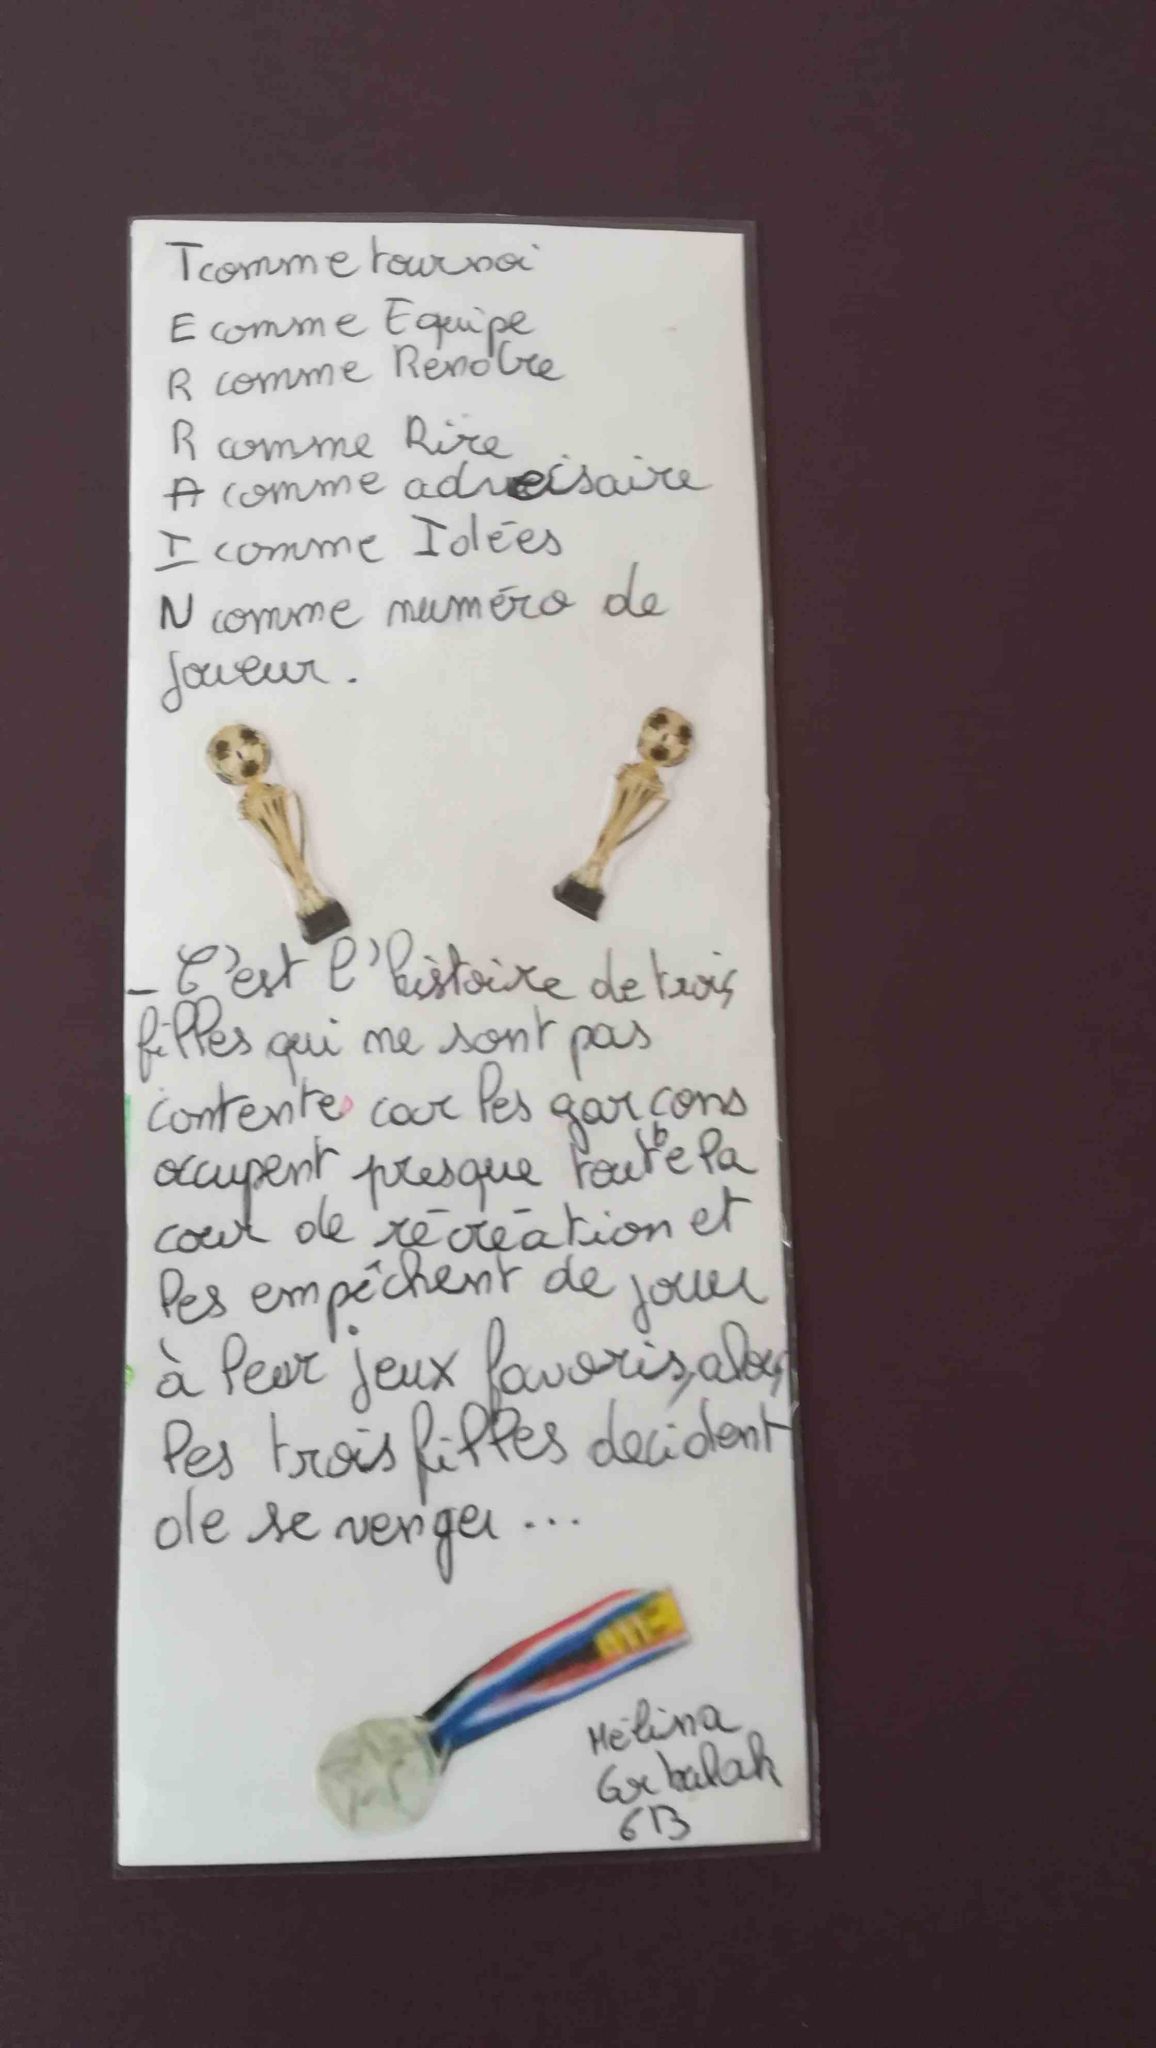 T comme tournoi
E comme Equipe
R comme Rendre
R comme Rire
A comme adversaire
I comme Idées
N comme numéro de
joueur.
- C'est l'histoire de trois
filles qui ne sont pas
contente car les garcons
occupent presque toute la
cour de récréation et
les empêchent de jouer
à leur jeux favoris, alors
les trois filles decident
de se venger...
Mélina
6B